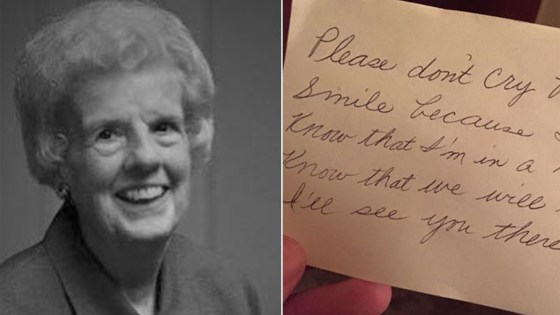 Please don't cry
Smile because
Know that I'm in a
Know that we will
I'll see you there